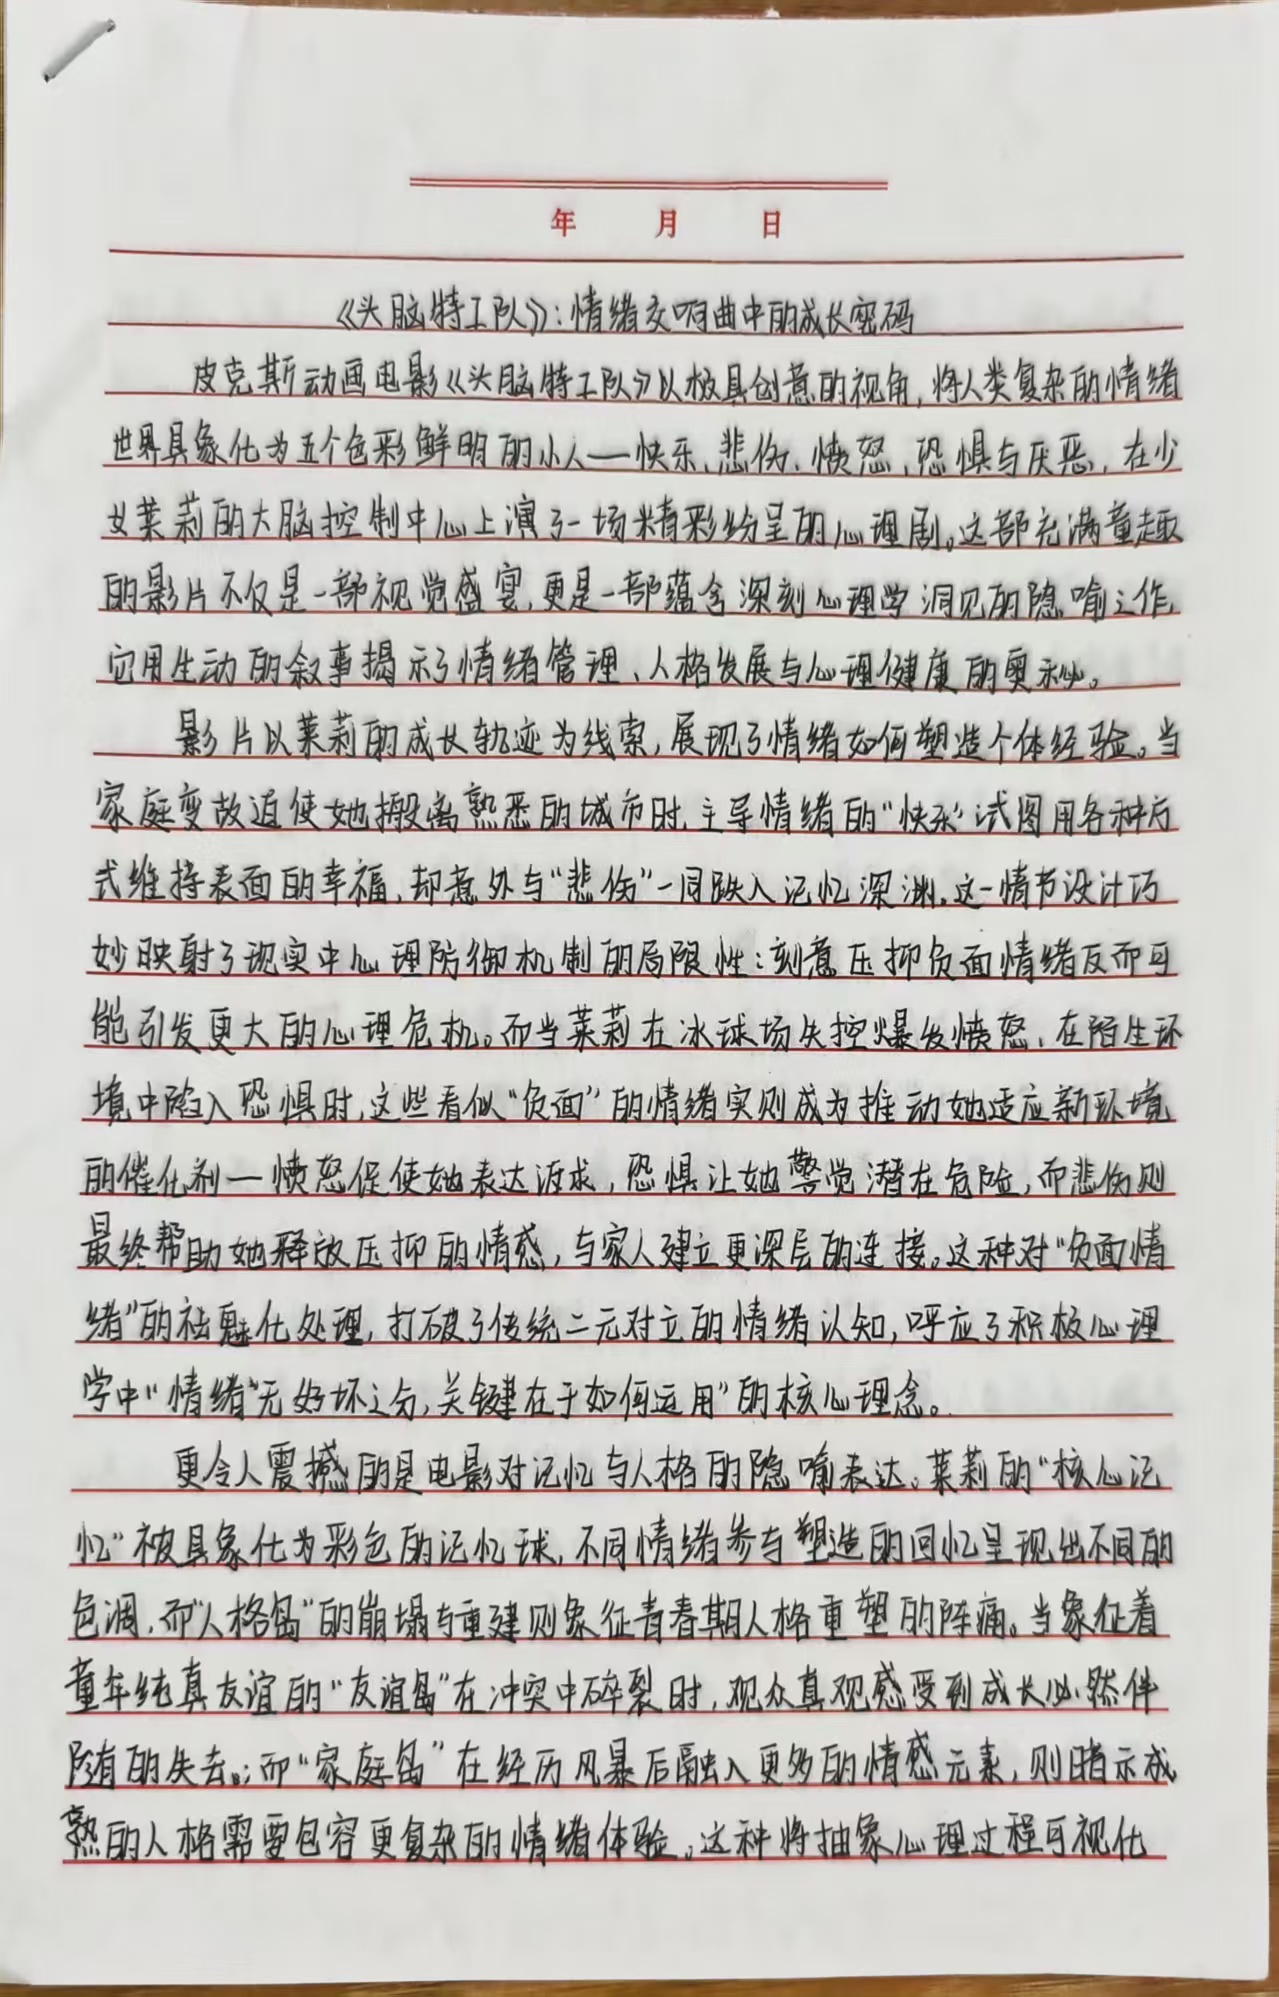 年 月 日
《头脑特工队》：情绪交响曲中的成长密码
皮克斯动画电影《头脑特工队》以极具创意的视角，将人类复杂的情绪
世界具象化为五个色彩鲜明的小人—快乐、悲伤、愤怒、恐惧与厌恶，在少
女莱莉的大脑控制中心上演了一场精彩纷呈的心理剧。这部充满童趣
的影片不仅是一部视觉盛宴，更是一部蕴含深刻心理学洞见的隐喻之作，
它用生动的叙事揭示了情绪管理、人格发展与心理健康的奥秘。
影片以莱莉的成长轨迹为线索，展现了情绪如何塑造个体经验。当
家庭变故迫使她搬离熟悉的城市时，主导情绪的“快乐”试图用各种方
式维持表面的幸福，却意外与“悲伤”一同跌入记忆深渊。这一情节设计巧
妙映射了现实中心理防御机制的局限性：刻意压抑负面情绪反而可
能引发更大的心理危机。而当莱莉在冰球场失控爆发愤怒、在陌生环
境中陷入恐惧时，这些看似“负面”的情绪实则成为推动她适应新环境
的催化剂—愤怒促使她表达诉求，恐惧让她警觉潜在危险，而悲伤则
最终帮助她释放压抑的情感，与家人建立更深层的连接。这种对“负面情
绪”的祛魅化处理，打破了传统二元对立的情绪认知，呼应了积极心理
学中“情绪”无好坏之分，关键在于如何运用”的核心理念。
更令人震撼的是电影对记忆与人格的隐喻表达。莱莉的“核心记
忆”被具象化为彩色的记忆球，不同情绪参与塑造的回忆呈现出不同的
色调，而“人格岛”的崩塌与重建则象征青春期人格重塑的阵痛。当象征着
童年纯真友谊的“友谊岛”在冲突中碎裂时，观众直观感受到成长必然伴
随的失去。；而“家庭岛”在经历风暴后融入更多的情感元素，则暗示成
熟的人格需要包容更复杂的情绪体验。这种将抽象心理过程可视化